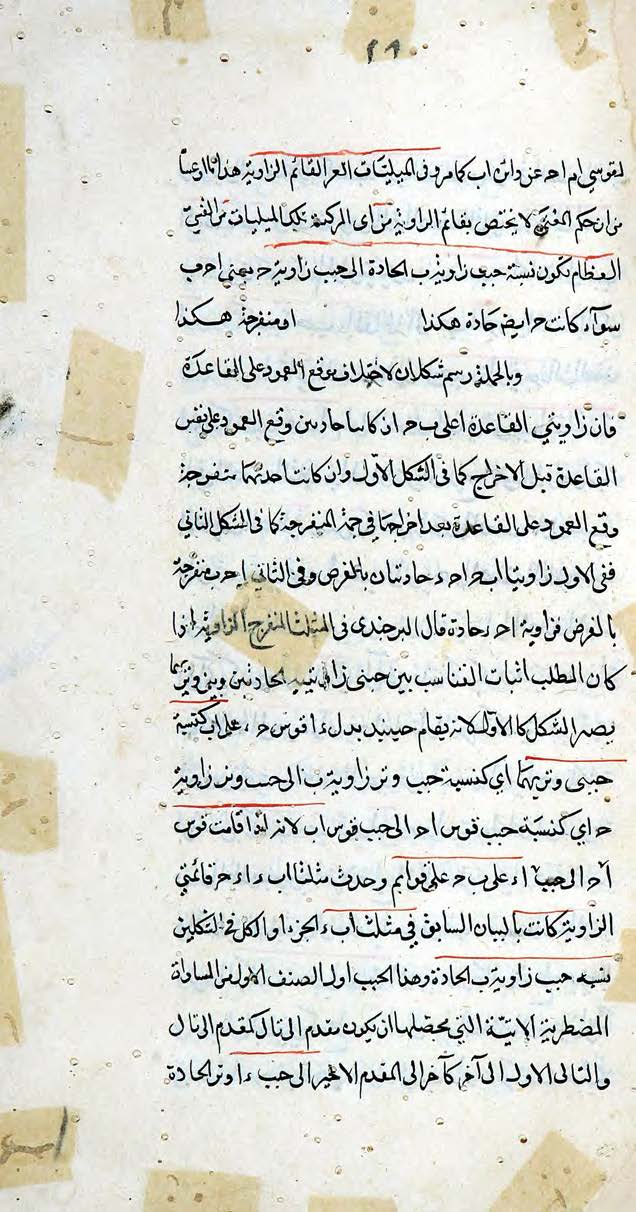 لقوسي ام احـ عن دائرة اب كما مر وفي المثلثات الغير القائم الزاوية هذا
من ان حكم المغني لا يختص بقائم الزاوية من اى المركبة تلك المثلثات من القسي
العظام تكون نسبة جيب زاوية ب الحادة الى جيب زاوية حـ يعني احـ ب
سوآء كانت حـ ايضا حادة هكذا او منفرجة هكذا
وبالجملة رسم شكلان لاختلاف موقع العمود على القاعدة
فان زاويتي القاعدة اعني ب حـ ان كانتا حادتين وقع العمود على نفس
القاعدة قبل الاخراج كما في الشكل الاول وان كانت احديهما منفرجة
وقع العمود على القاعدة بعد اخراجها في جهة المنفرجة كما في الشكل الثاني
ففي الاول زاويتا اب حـ احـ ء حادتان بالفرض وفي الثاني احـ ب منفرجة
بالفرض فزاوية احـ ء حادة قال البرجندى في المثلث المنفرج الزاوية اذا
كان المطلب اثبات التناسب بين جيبي زاويتيه الحادتين وبين وتريهما
يصير الشكل كالاول لانه يقام حينئذ بدل ء ا قوس حـ ء على اب كنسبة
جيبى وتريهما اي كنسبة جيب وتر زاوية ب الى جيب وتر زاوية
حـ اي كنسبة جيب قوس احـ الى جيب قوس اب لانه اذا قامت قوس
اء على ب حـ على قوايم وحدث مثلثا اب ء اء حـ قائمتي
الزاوية كانت بالبيان السابق في مثلث اب ء الجزء او الكل في الشكلين
نسبة جيب زاوية ب الحادة وهذا الجيب اول الصنف الاول في المساواة
المضطربة الاتية التي محصلها ان يكون مقدم الى تال كمقدم الى تال
والتالى الاول الى آخر كآخر الى المقدم الاخير الى جيب ء ا وتر الحادة